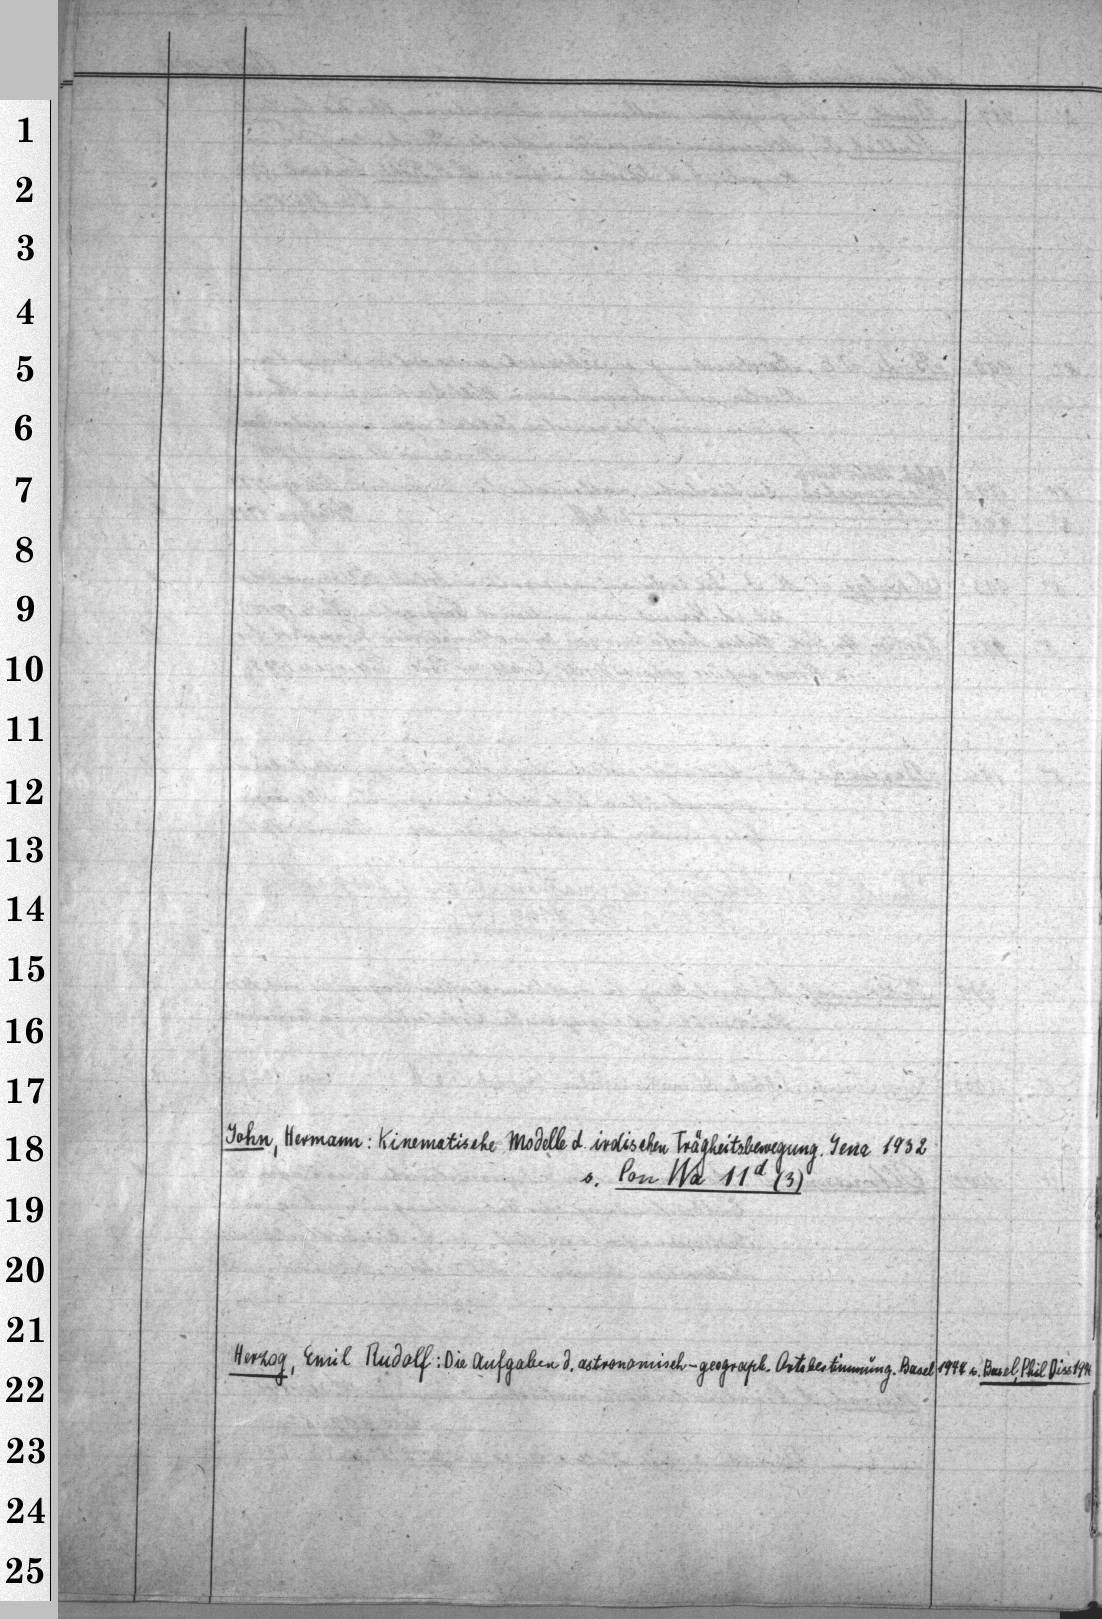 1
2
3
4
5
6
7
8
9
10
11
12
13
14
15
16
17
18
John, Hermann: Kinematische Modelle d. irdischen Trägheitsbewegung. Jena 1932
s. Pon Wa 11d (3)
19
20
21
Herzog, Emil Rudolf: Die Aufgaben d. astronomisch-geograph. Ortsbestimmung. Basel 1944 s. Basel, Phil Diss 1944
22
23
24
25